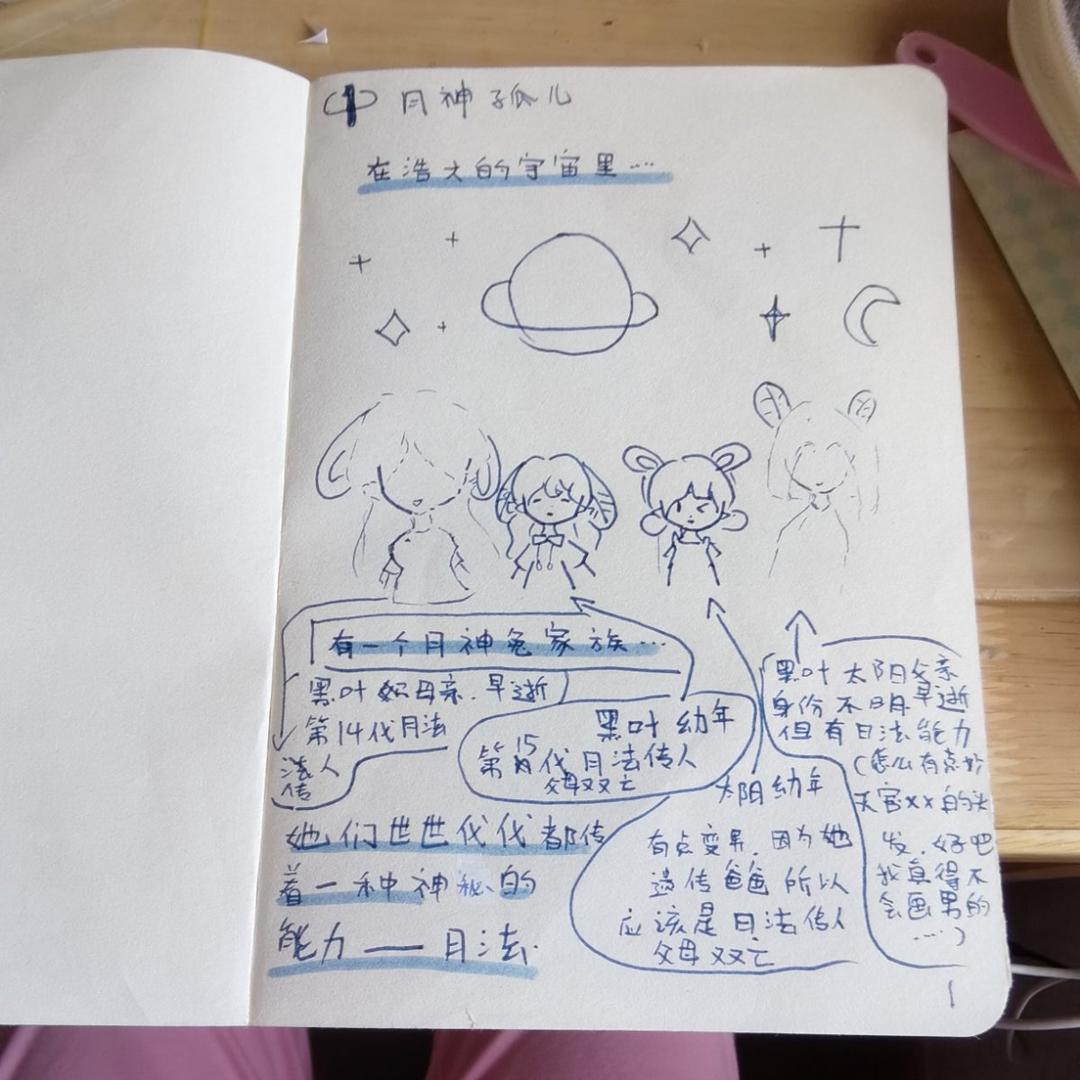 ① 月神孤儿
在浩大的宇宙里…
有一个月神兔家族…
黑叶 母亲.早逝
第14代月法
传人
黑叶幼年
第15代月法传人
父母双亡
太阳幼年
有点变异.因为她
遗传爸爸所以
应该是日法传人
父母双亡
黑叶太阳父亲
身份不明早逝
但有日法能力
(怎么有点妙
天宫××的头
发.好吧
我真得不
会画男的
……)
她们世世代代都传
着一种神秘的
能力——月法.
1